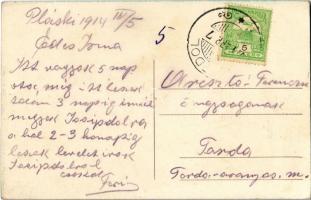 Plaski 1914 IV/5
Édes Ilona
Itt vagyok 5 nap
óta, még itt leszek
talán 3 napig innét
megyek Josipdolra
a hol 2-3 honapig
leszek levelet irok
Josipdolról
csókol
Feri
5
Arisztó Ferencz
ő nagyságának
Torda
Torda-aranyos. m.